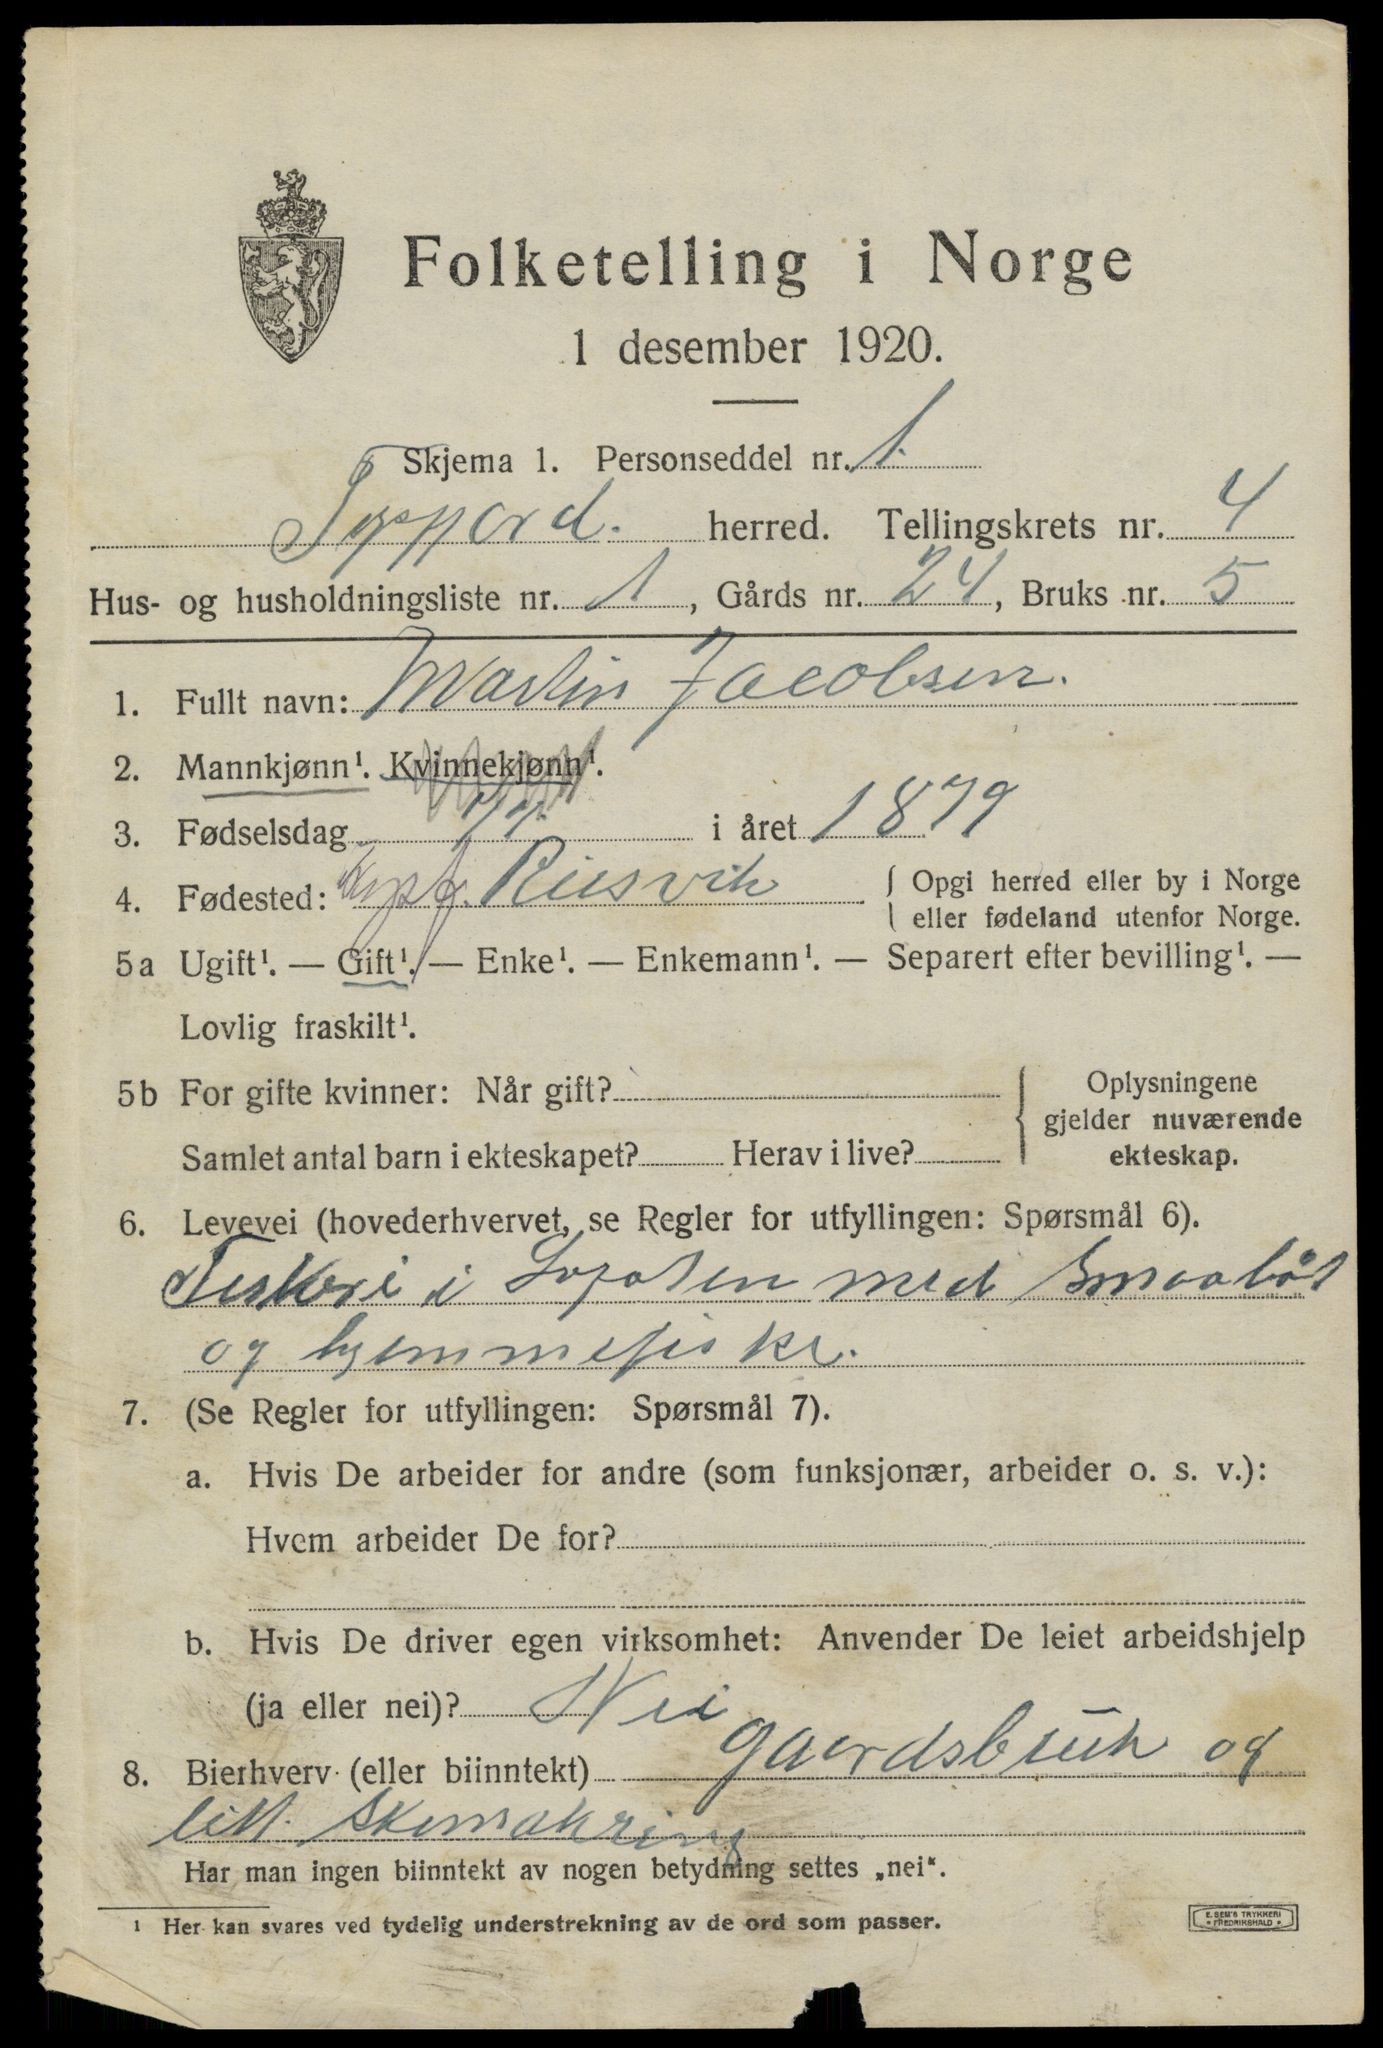 Folketelling i Norge
1 desember 1920.
Skjema 1. Personseddel nr. 1.
herred. Tellingskrets nr. 4
Hus- og husholdningsliste nr. 1, Gårds nr. 24, Bruks nr. 5
1. Fullt navn: Martin Jacobsen.
2. Mannkjønn¹. Kvinnekjønn¹.
3. Fødselsdag i året 1879
4. Fødested: Riisvik { Opgi herred eller by i Norge
eller fødeland utenfor Norge.
5a Ugift¹. — Gift¹. — Enke¹. — Enkemann¹. — Separert efter bevilling¹. —
Lovlig fraskilt¹.
5b For gifte kvinner: Når gift? { Oplysningene
gjelder nuværende
Samlet antal barn i ekteskapet? Herav i live? ekteskap.
6. Levevei (hovederhvervet, se Regler for utfyllingen: Spørsmål 6).
Fiskeri i Lofoten med Smaabåt
og hjemmefiske.
7. (Se Regler for utfyllingen: Spørsmål 7).
a. Hvis De arbeider for andre (som funksjonær, arbeider o. s. v.):
Hvem arbeider De for?
b. Hvis De driver egen virksomhet: Anvender De leiet arbeidshjelp
(ja eller nei)? Nei
8. Bierhverv (eller biinntekt) gaardsbruk og
litt. Skomakring
Har man ingen biinntekt av nogen betydning settes „nei“.
¹ Her kan svares ved tydelig understrekning av de ord som passer.
E. SEM'S TRYKKERI
• FREDRIKSHALD •